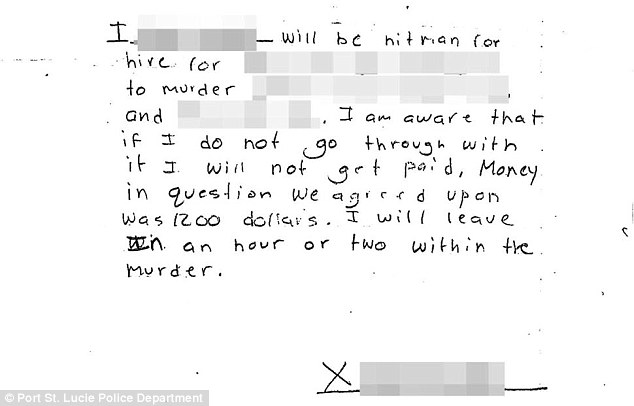 I will be hitman for
hire for
to murder
and . I am aware that
if I do not go through with
it I will not get paid, Money
in question we agreed upon
was 1200 dollars. I will leave
in an hour or two within the
murder.
X
© Port St. Lucie Police Department